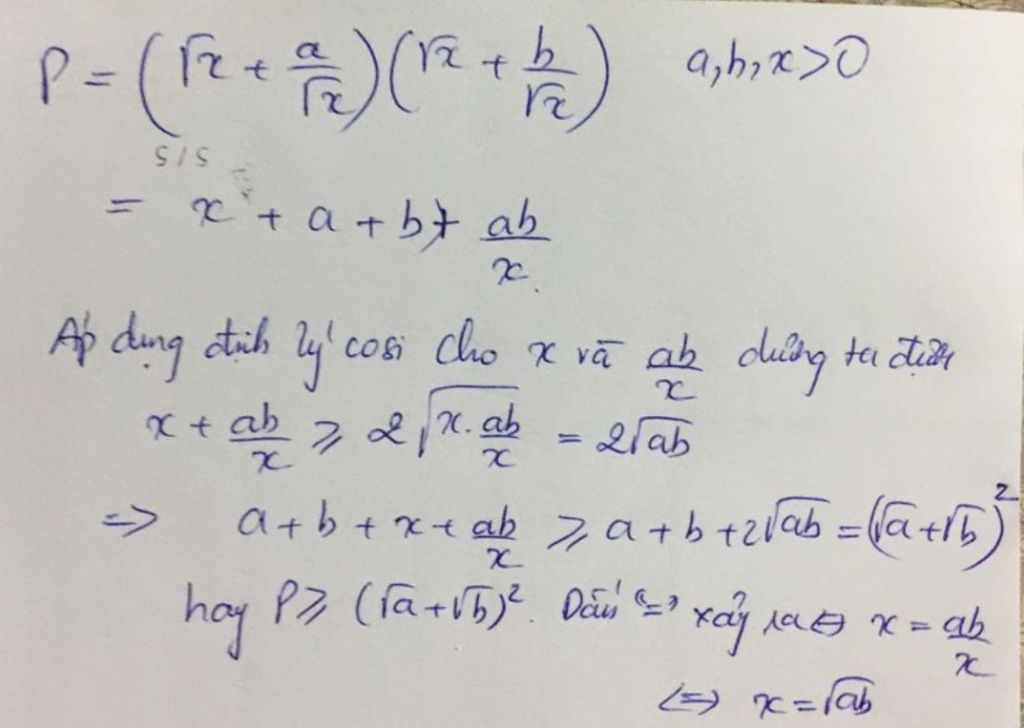 P = (√x + a/√x)(√x + b/√x) a,b,x>0
= x + a + b + ab/x
Áp dụng định lý cosi cho x và ab/x dương ta được
x + ab/x ≥ 2√(x.ab/x) = 2√ab
=> a + b + x + ab/x ≥ a + b + 2√ab = (√a+√b)²
hay P ≥ (√a+√b)². Dấu "=" xảy ra <=> x = ab/x
<=> x = √ab